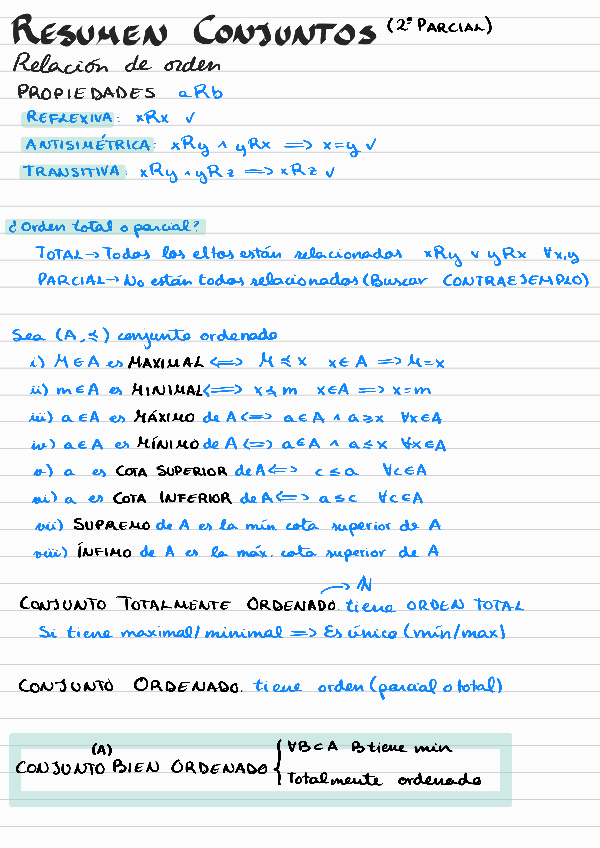 RESUMEN CONJUNTOS (2º PARCIAL)
Relación de orden
PROPIEDADES aRb
REFLEXIVA: xRx ✓
ANTISIMÉTRICA: xRy ∧ yRx ⟹ x=y ✓
TRANSITIVA: xRy ∧ yRz ⟹ xRz ✓
¿Orden total o parcial?
TOTAL → Todos los eltos están relacionados xRy ∨ yRx ∀x,y
PARCIAL → No están todos relacionados (Buscar CONTRAEJEMPLO)
Sea (A, ≼) conjunto ordenado
i) M ∈ A es MAXIMAL ⟺ M ≼ x x ∈ A ⟹ M=x
ii) m ∈ A es MINIMAL ⟺ x ≼ m x∈A ⟹ x=m
iii) a ∈ A es MÁXIMO de A ⟺ a ∈ A ∧ a ≥ x ∀x∈A
iv) a ∈ A es MÍNIMO de A ⟺ a ∈ A ∧ a ≤ x ∀x∈A
v) a es COTA SUPERIOR de A ⟺ c ≤ a ∀c∈A
vi) a es COTA INFERIOR de A ⟺ a ≤ c ∀c∈A
vii) SUPREMO de A es la mín cota superior de A
viii) ÍNFIMO de A es la máx. cota superior de A
→ ℕ
CONJUNTO TOTALMENTE ORDENADO. tiene ORDEN TOTAL
Si tiene maximal/minimal ⟹ Es único (mín/max)
CONJUNTO ORDENADO. tiene orden (parcial o total)
(A) { ∀B⊂A B tiene min
CONJUNTO BIEN ORDENADO
Totalmente ordenado